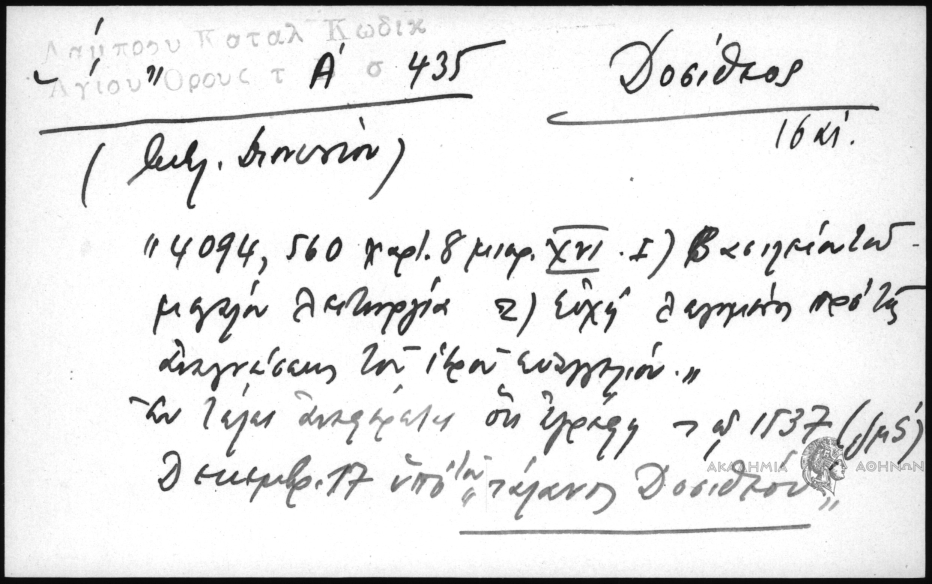 Λάμπρου Καταλ Κωδικ
Αγίου Όρους τ Α σ 435
Δοσίθεος
16 αι.
(      Διονυσίου)
"4094, 560 χαρτ. 8 μικρ. XVI. 1) Βασιλείου του
μεγάλου λειτουργία 2) Εὐχή λεγομένη πρό τῆς
ἀναγνώσεως τοῦ ἱεροῦ εὐαγγελίου."
Ἐν τέλει ἀναφέρεται ὅτι ἐγράφη τῷ 1537
Δεκεμβρ. 17 ὑπό τοῦ "     Δοσιθέου"
ΑΚΑΔΗΜΙΑ ΑΘΗΝΩΝ